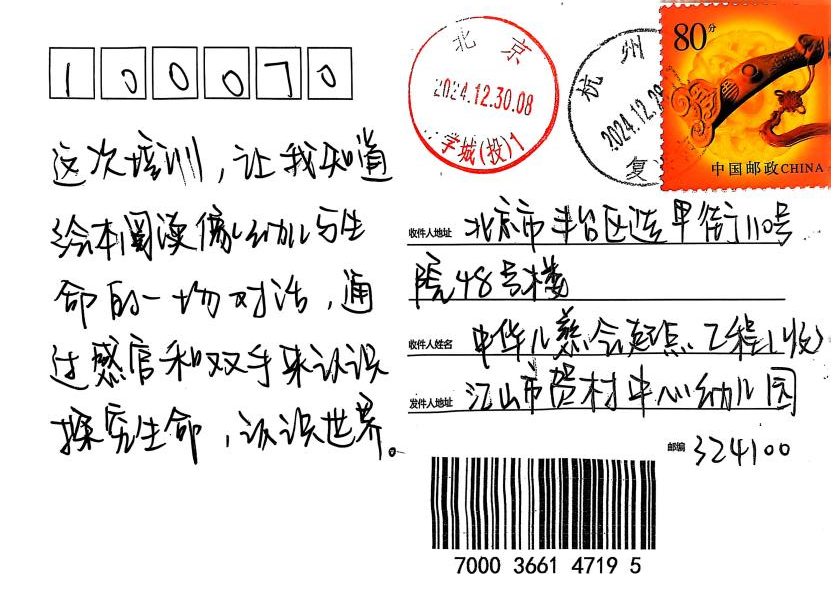 100070
这次培训，让我知道
绘本阅读像幼儿与生
命的一场对话，通
过感官和双手来认识
探究生命，认识世界。
北京
2024.12.30.08
学城(投)1
杭州
2024.12.29
复
80分
中国邮政CHINA
收件人地址 北京市丰台区造甲街110号
院48号楼
收件人姓名 中华儿慈会起点工程(收)
发件人地址 江山市贺村中心幼儿园
邮编 324100
7000 3661 4719 5